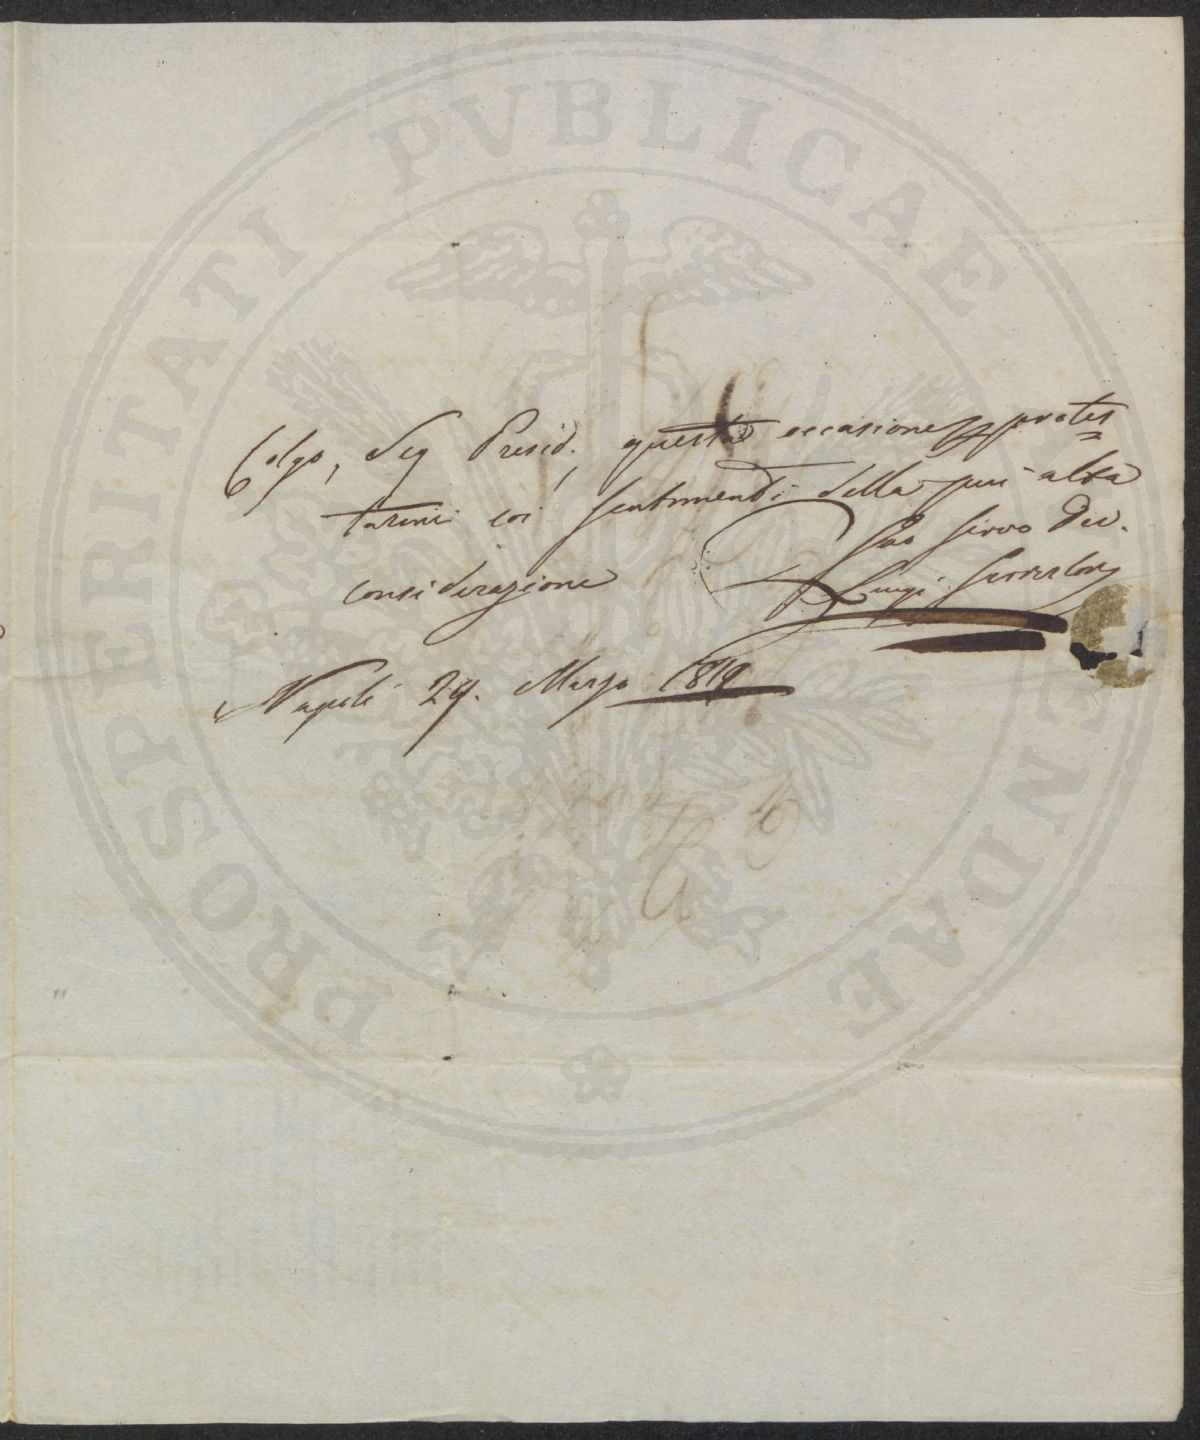 PROSPERITATI PVBLICAE AVGENDAE
Colgo, Sig Presid., questa occasione p protes=
tarmi coi sentimenti della piu alta
considerazione
Suo Servo Dev.
Luigi
Napoli 29. Marzo 1819